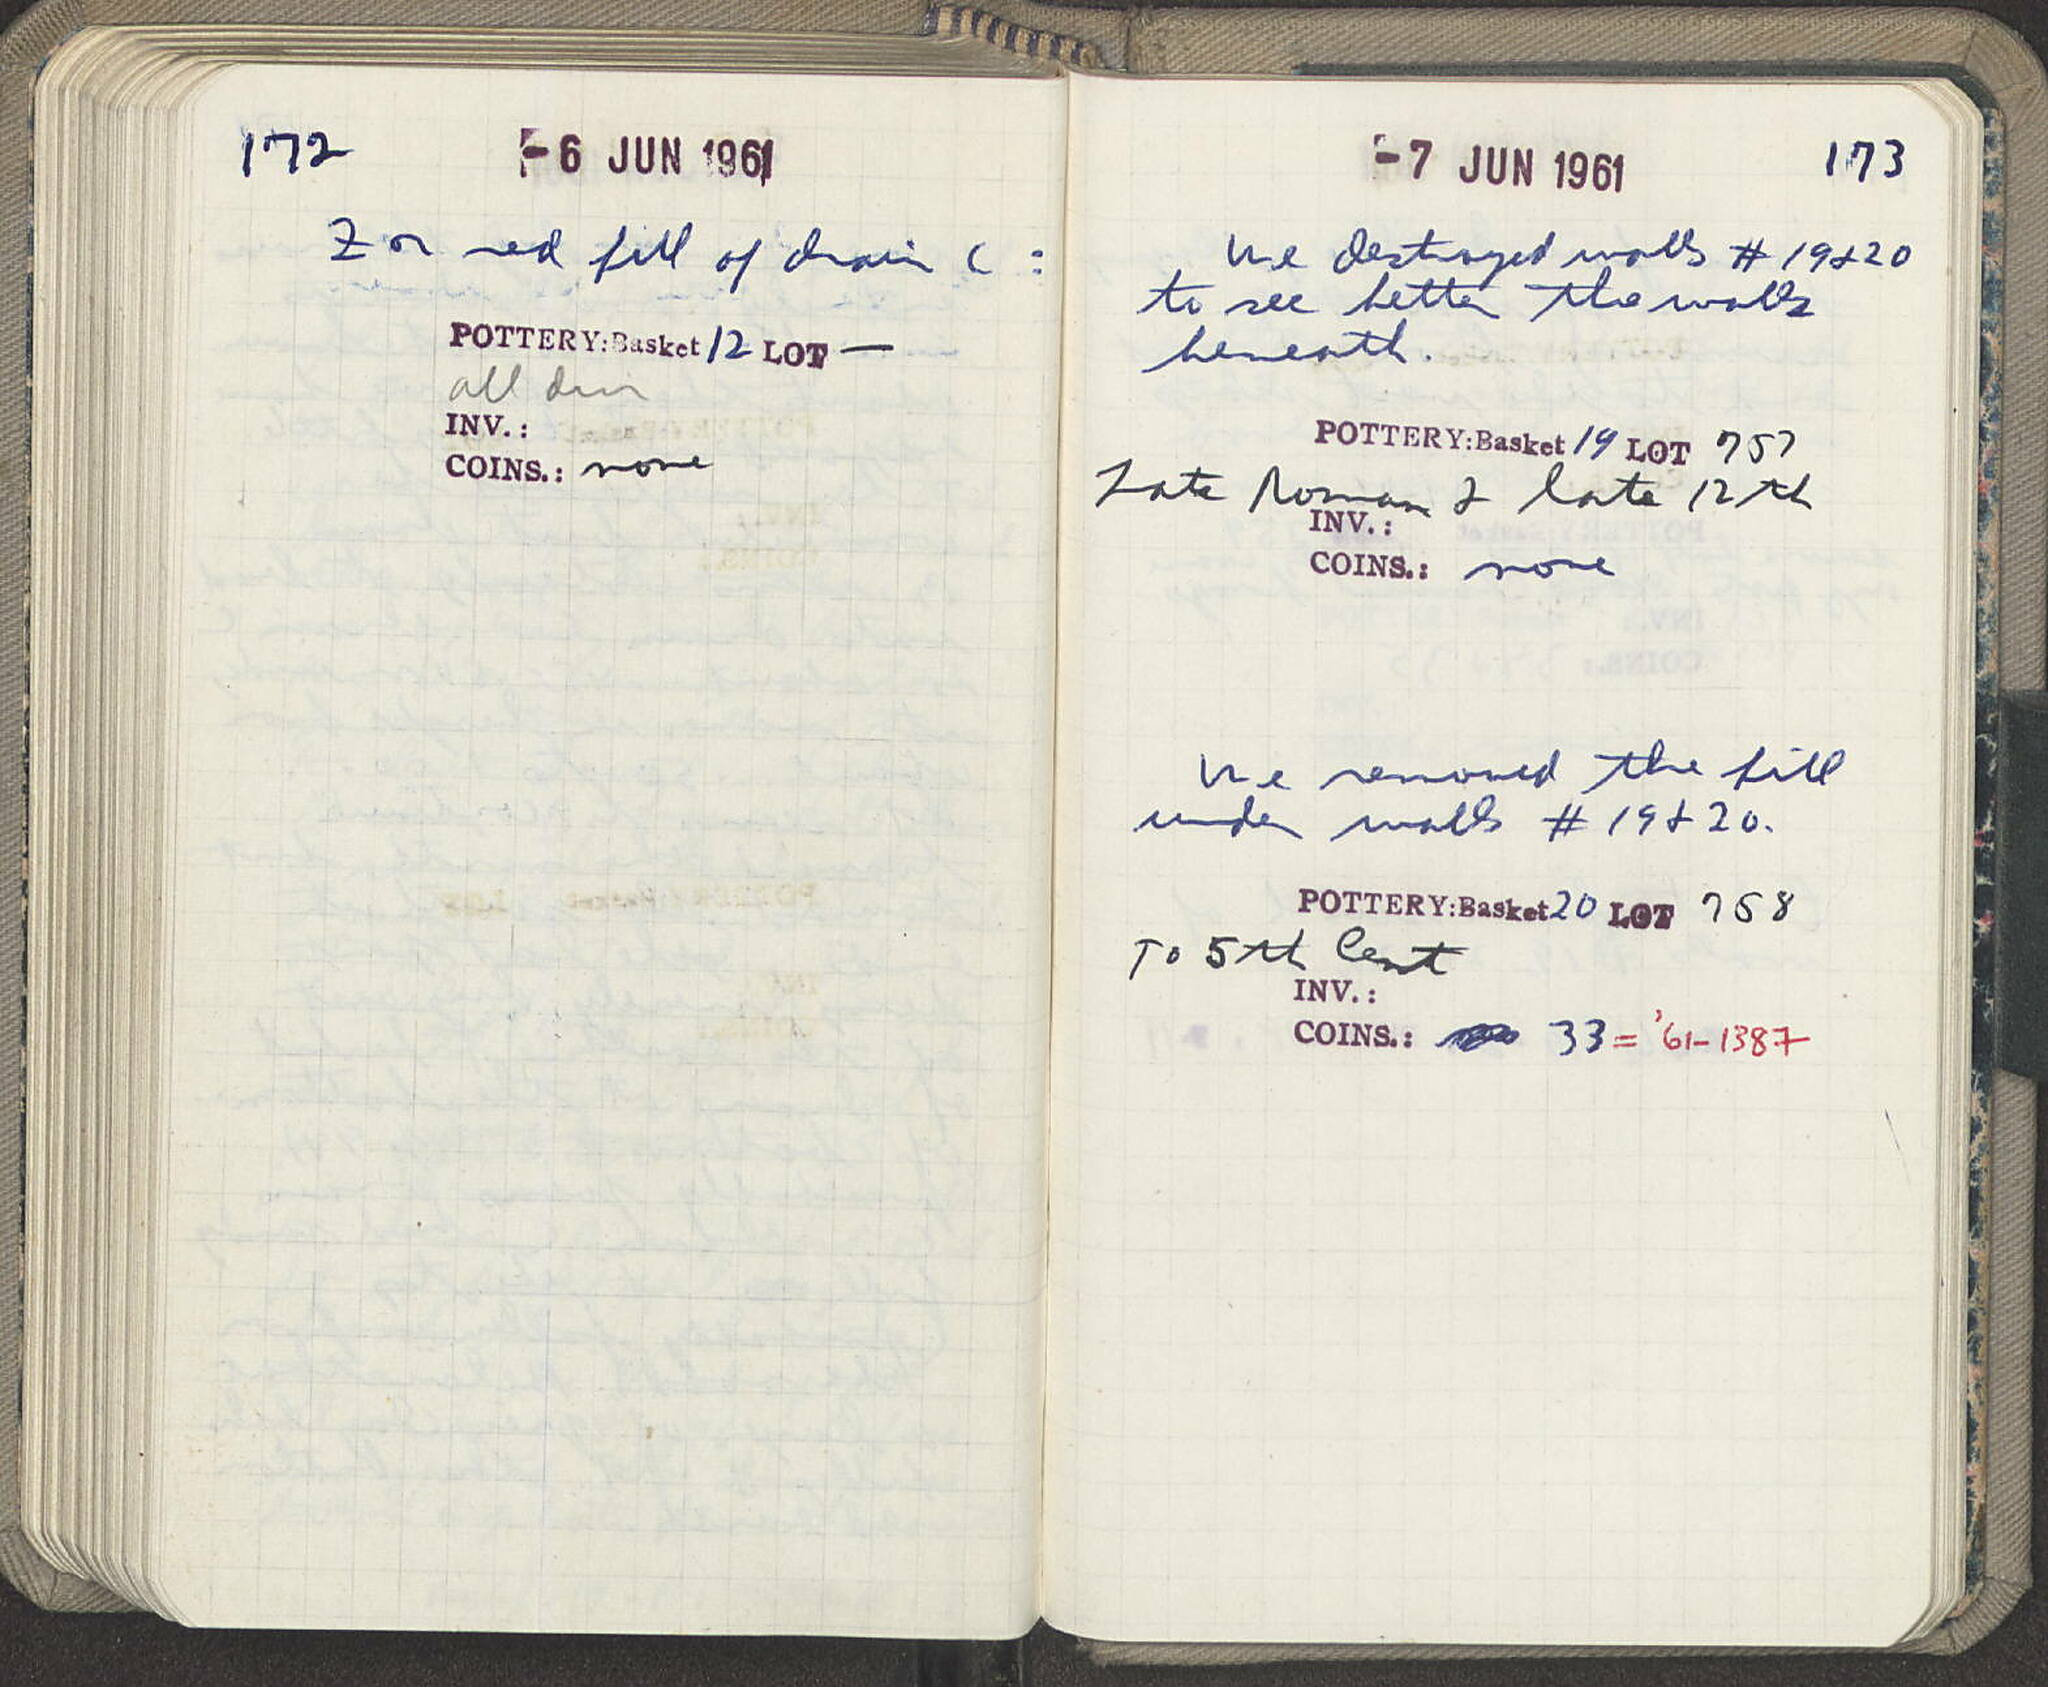 172
-6 JUN 1961
For red fill of drain C :
POTTERY:Basket 12 LOT —
all
INV.:
COINS.: none
-7 JUN 1961
173
We destroyed walls # 19 & 20
to see better the walls
beneath.
POTTERY:Basket 19 LOT 757
Late Roman & late 12th
INV.:
COINS.: none
We removed the fill
under walls # 19 & 20.
POTTERY:Basket 20 LOT 758
To 5th Cent
INV.:
COINS.: 33 = '61-1387